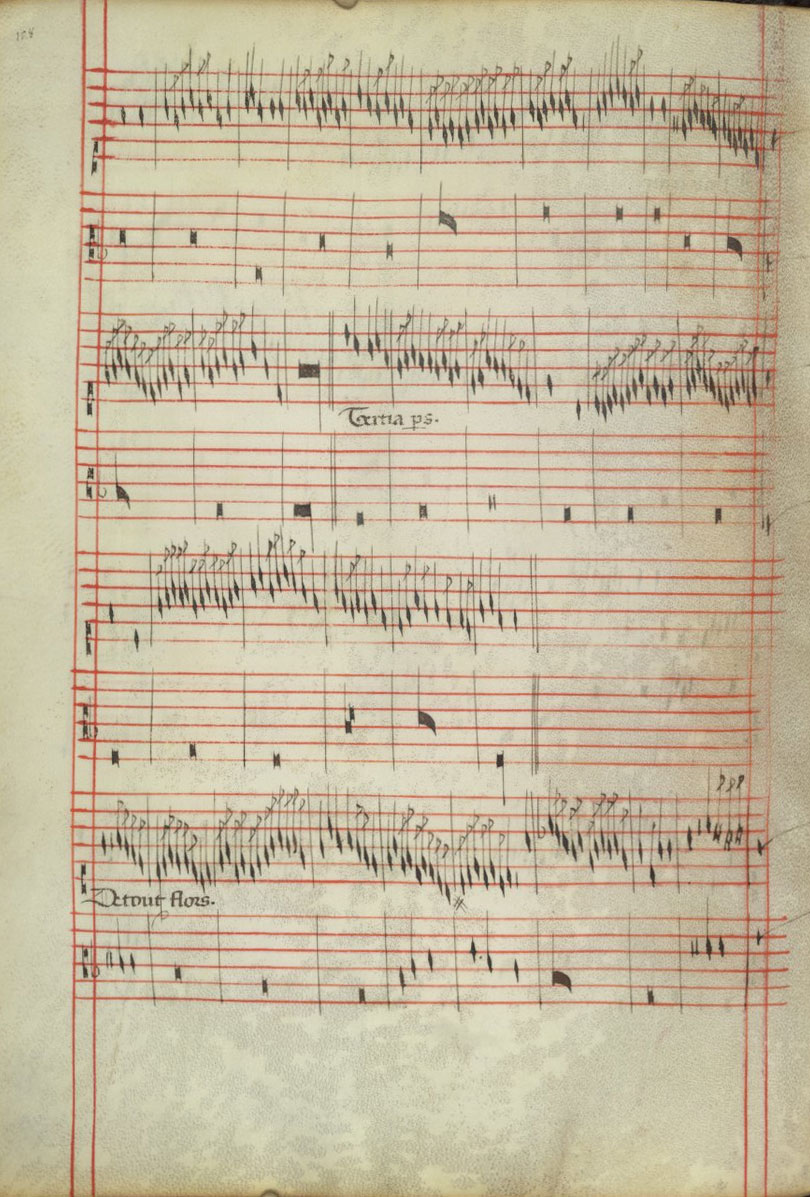 Tertia ps.
Detout flors.